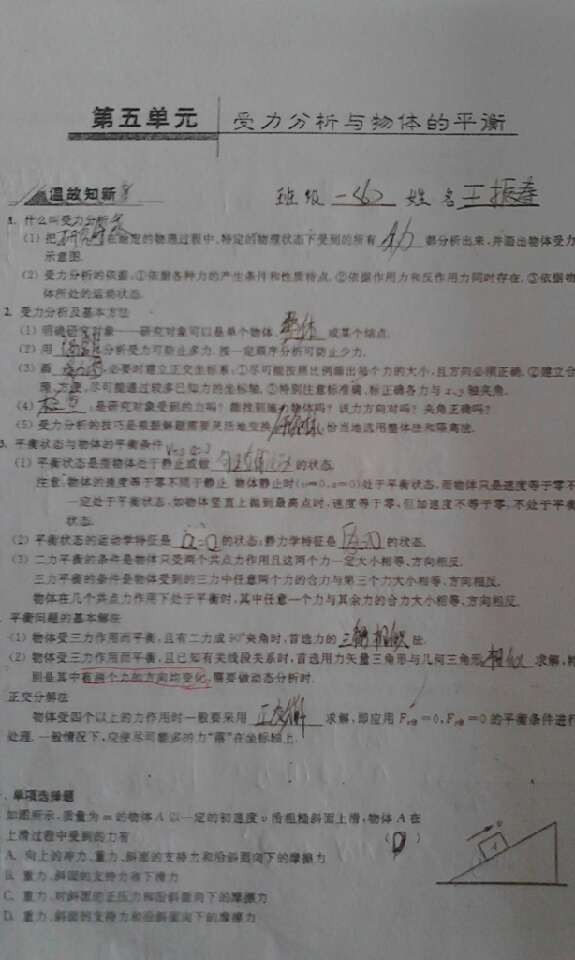 第五单元 受力分析与物体的平衡
温故知新 班级 一<6> 姓名 王振春
1. 什么叫受力分析
(1) 把 研究对象 在给定的物理过程中,特定的物理状态下受到的所有 力 都分析出来,并画出物体受力
示意图.
(2) 受力分析的依据,①依据各种力的产生条件和性质特点,②依据作用力和反作用力同时存在,③依据物
体所处的运动状态.
2. 受力分析及基本方法
(1) 明确研究对象——研究对象可以是单个物体、整体 或某个结点.
(2) 用 分析受力可防止多力,按一定顺序分析可防止少力.
(3) 画 必要时建立正交坐标系:①尽可能按照比例画出每个力的大小,且方向必须正确,②建立合
理、方便,尽可能通过较多已知力的坐标轴,③特别注意标准确,标正确各力与x、y轴夹角.
(4) 检查 :是研究对象受到的力吗?能找到施力物体吗?该力方向对吗?夹角正确吗?
(5) 受力分析的技巧是根据解题需要灵活地变换 恰当地选用整体法和隔离法.
3. 平衡状态与物体的平衡条件
(1) 平衡状态是指物体处于静止或做 匀速直线运动 的状态.
注意:物体的速度等于零不同于静止.物体静止时(v=0,a=0)处于平衡状态,而物体只是速度等于零不
一定处于平衡状态.如物体竖直上抛到最高点时,速度等于零,但加速度不等于零,不处于平衡
状态.
(2) 平衡状态的运动学特征是 a=0 的状态;静力学特征是 F=0 的状态.
(3) 二力平衡的条件是物体只受两个共点力作用且这两个力一定大小相等、方向相反.
三力平衡的条件是物体受到的三力中任意两个力的合力与第三个力大小相等、方向相反.
物体在几个共点力作用下处于平衡时,其中任意一个力与其余力的合力大小相等、方向相反.
平衡问题的基本解法
(1) 物体受三力作用而平衡,且有二力成90°夹角时,首选力的 三角相似 法.
(2) 物体受三力作用而平衡,且已知有关线段关系时,首选用力矢量三角形与几何三角形 相似 求解,特
别是其中有两个力的方向均变化,需要做动态分析时.
正交分解法
物体受四个以上的力作用时一般要采用 正交分解 求解,即应用 Fx合=0,Fy合=0 的平衡条件进行
处理.一般情况下,应使尽可能多的力“落”在坐标轴上.
单项选择题
如图所示,质量为m的物体A以一定的初速度v沿粗糙斜面上滑,物体A在
上滑过程中受到的力有 (D)
A. 向上的冲力、重力、斜面的支持力和沿斜面向下的摩擦力
B. 重力、斜面的支持力和下滑力
C. 重力、对斜面的正压力和沿斜面向下的摩擦力
D. 重力、斜面的支持力和沿斜面向下的摩擦力